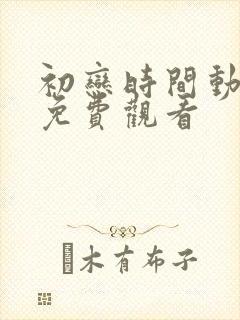 初戀時間動
免費觀看
木有布子